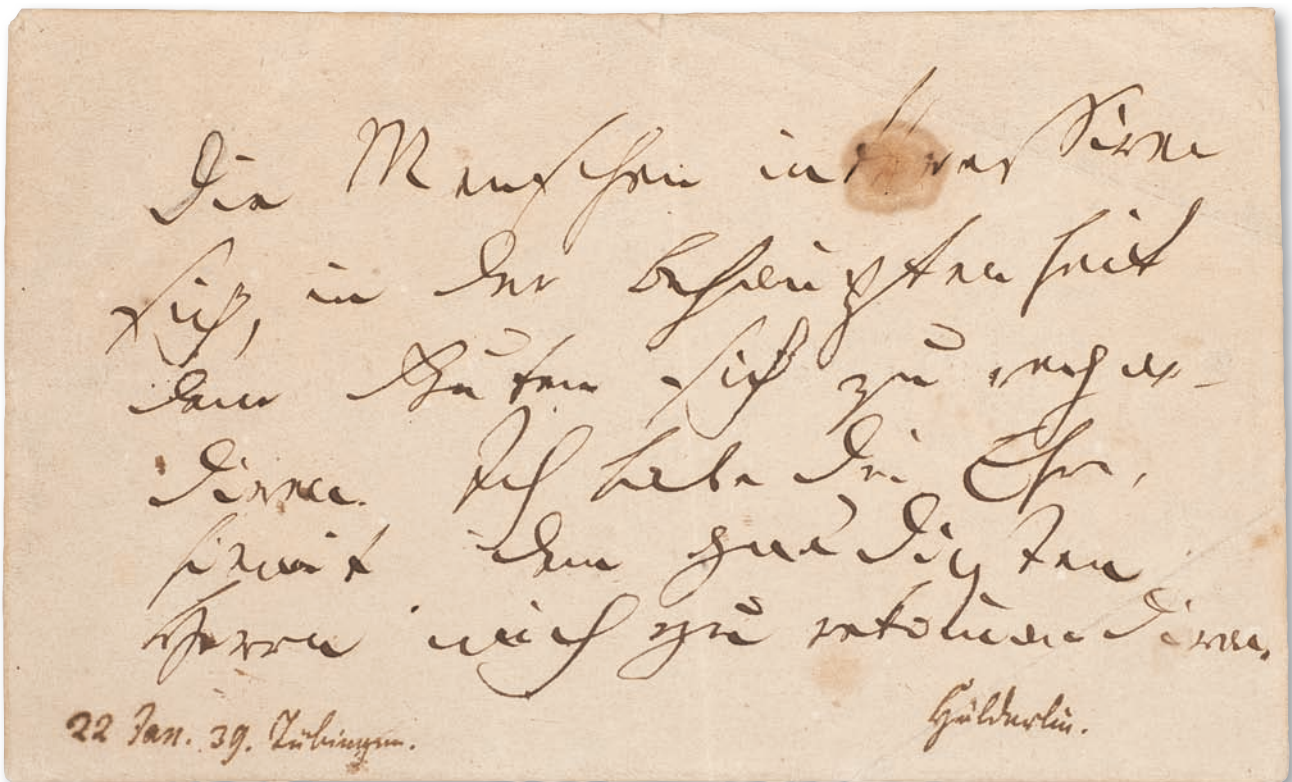 Die Menschen interessiren
sich, in der Behauptenheit
dem Guten sich zu regar-
diren. Ich habe die Ehre,
hiemit dem gnädigsten
Herrn mich zu rekommandiren.
22 Jan. 39. Tübingen.
Hölderlin.